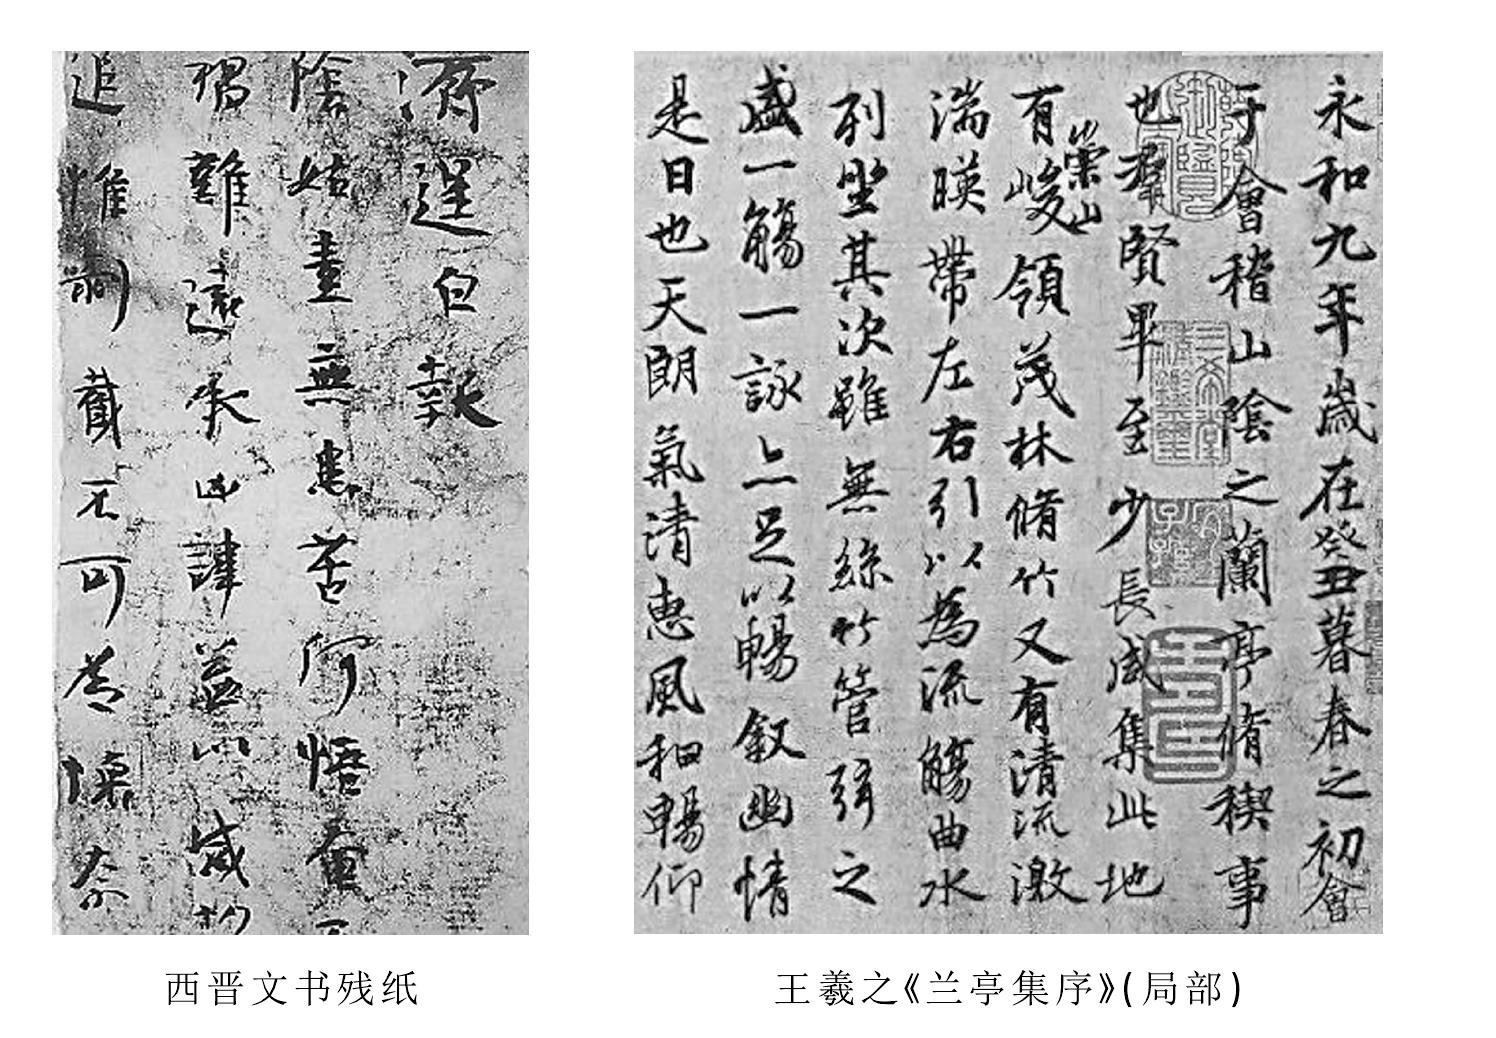 濟逞白報
陰姑素無患苦何悟奄
獨難遠承凶諱益以感
追惟剝截不可為懷奈
西晋文书残纸
永和九年歲在癸丑暮春之初會
于會稽山陰之蘭亭脩稧事
也羣賢畢至少長咸集此地
有崇山峻領茂林脩竹又有清流激
湍暎帶左右引以為流觴曲水
列坐其次雖無絲竹管弦之
盛一觴一詠亦足以暢叙幽情
是日也天朗氣清惠風和暢仰
王羲之《兰亭集序》(局部)